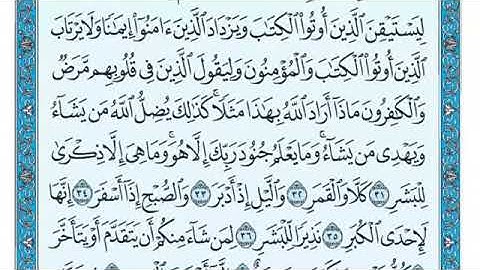 لِيَسْتَيْقِنَ الَّذِينَ أُوتُوا الْكِتَابَ وَيَزْدَادَ الَّذِينَ ءَامَنُوا إِيمَانًا وَلَا يَرْتَابَ
الَّذِينَ أُوتُوا الْكِتَابَ وَالْمُؤْمِنُونَ وَلِيَقُولَ الَّذِينَ فِي قُلُوبِهِم مَّرَضٌ
وَالْكَافِرُونَ مَاذَا أَرَادَ اللَّهُ بِهَذَا مَثَلًا ۚ كَذَلِكَ يُضِلُّ اللَّهُ مَن يَشَاءُ
وَيَهْدِي مَن يَشَاءُ ۚ وَمَا يَعْلَمُ جُنُودَ رَبِّكَ إِلَّا هُوَ ۚ وَمَا هِيَ إِلَّا ذِكْرَىٰ
لِلْبَشَرِ ٣١ كَلَّا وَالْقَمَرِ ٣٢ وَاللَّيْلِ إِذْ أَدْبَرَ ٣٣ وَالصُّبْحِ إِذَا أَسْفَرَ ٣٤ إِنَّهَا
لَإِحْدَى الْكُبَرِ ٣٥ نَذِيرًا لِّلْبَشَرِ ٣٦ لِمَن شَاءَ مِنكُمْ أَن يَتَقَدَّمَ أَوْ يَتَأَخَّرَ